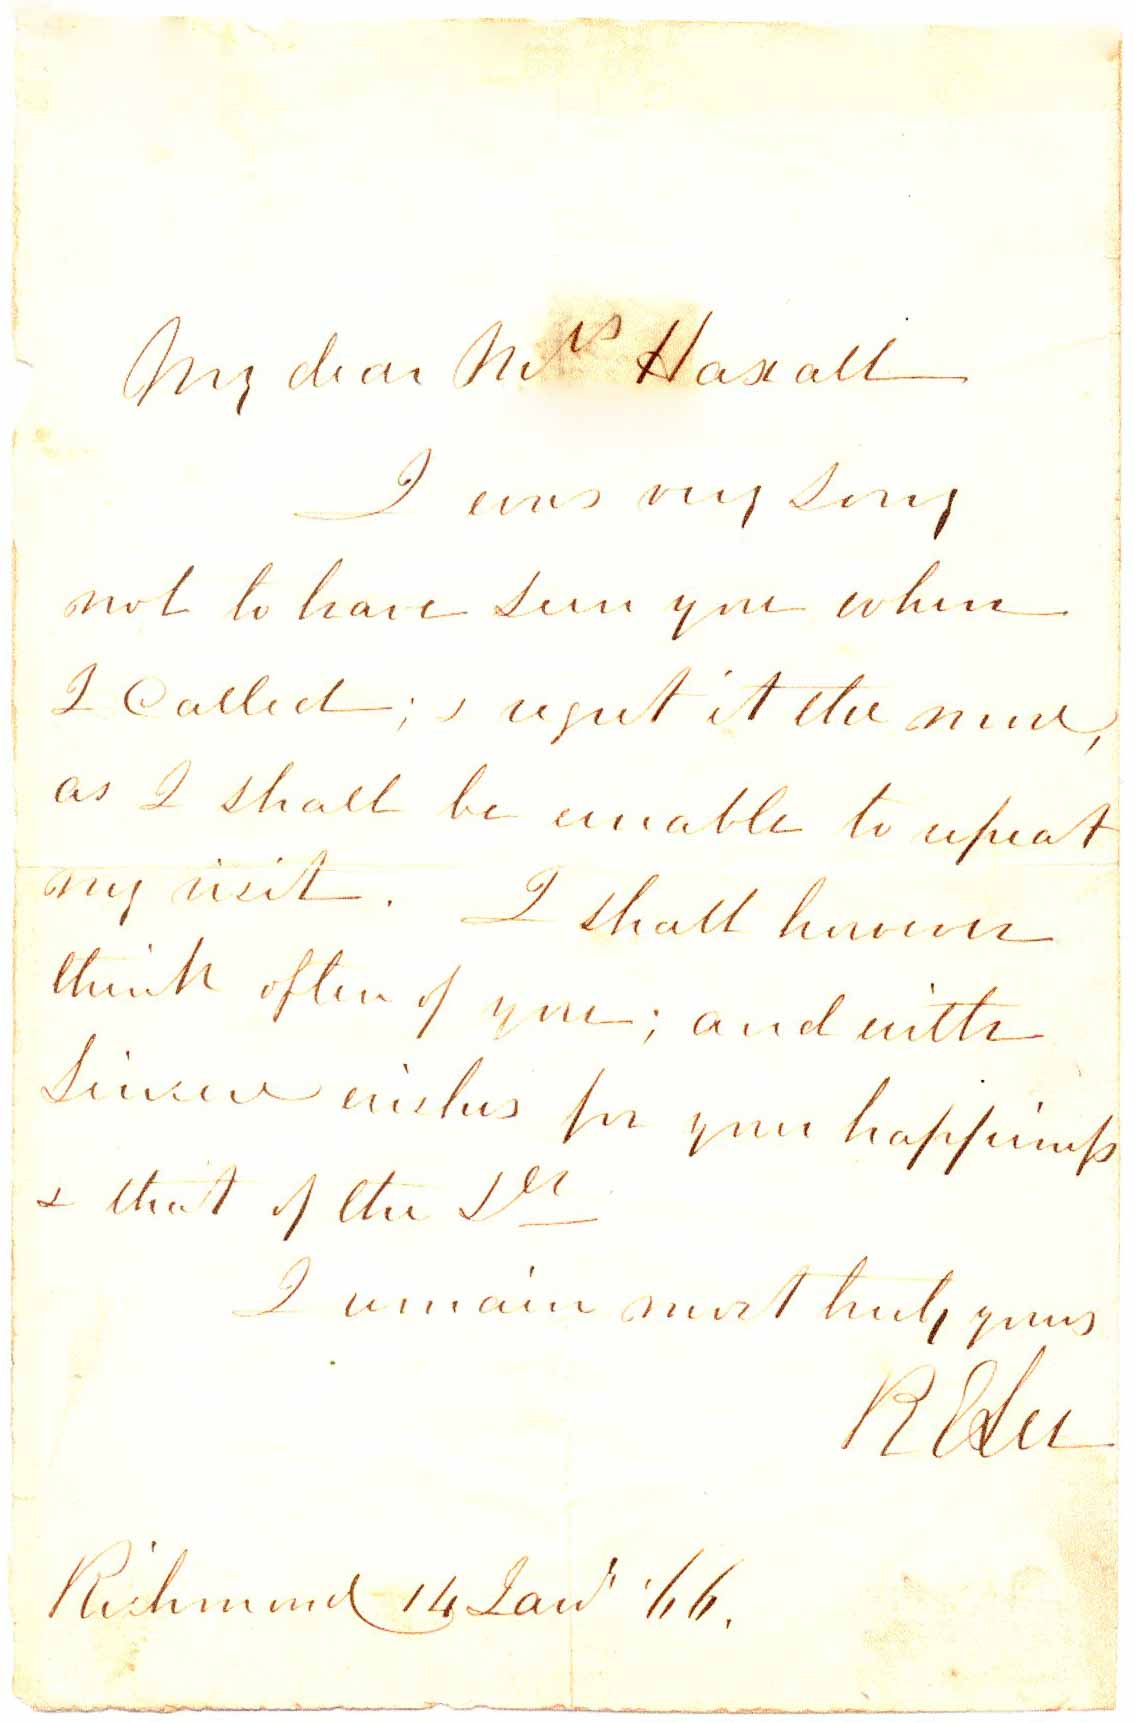 My dear Mrs Haxall
I was very sorry
not to have seen you when
I called; & regret it the more,
as I shall be unable to repeat
my visit. I shall however
think often of you; and with
sincere wishes for your happiness
& that of the Dr
I remain most truly yours
R E Lee
Richmond 14 Jany '66.